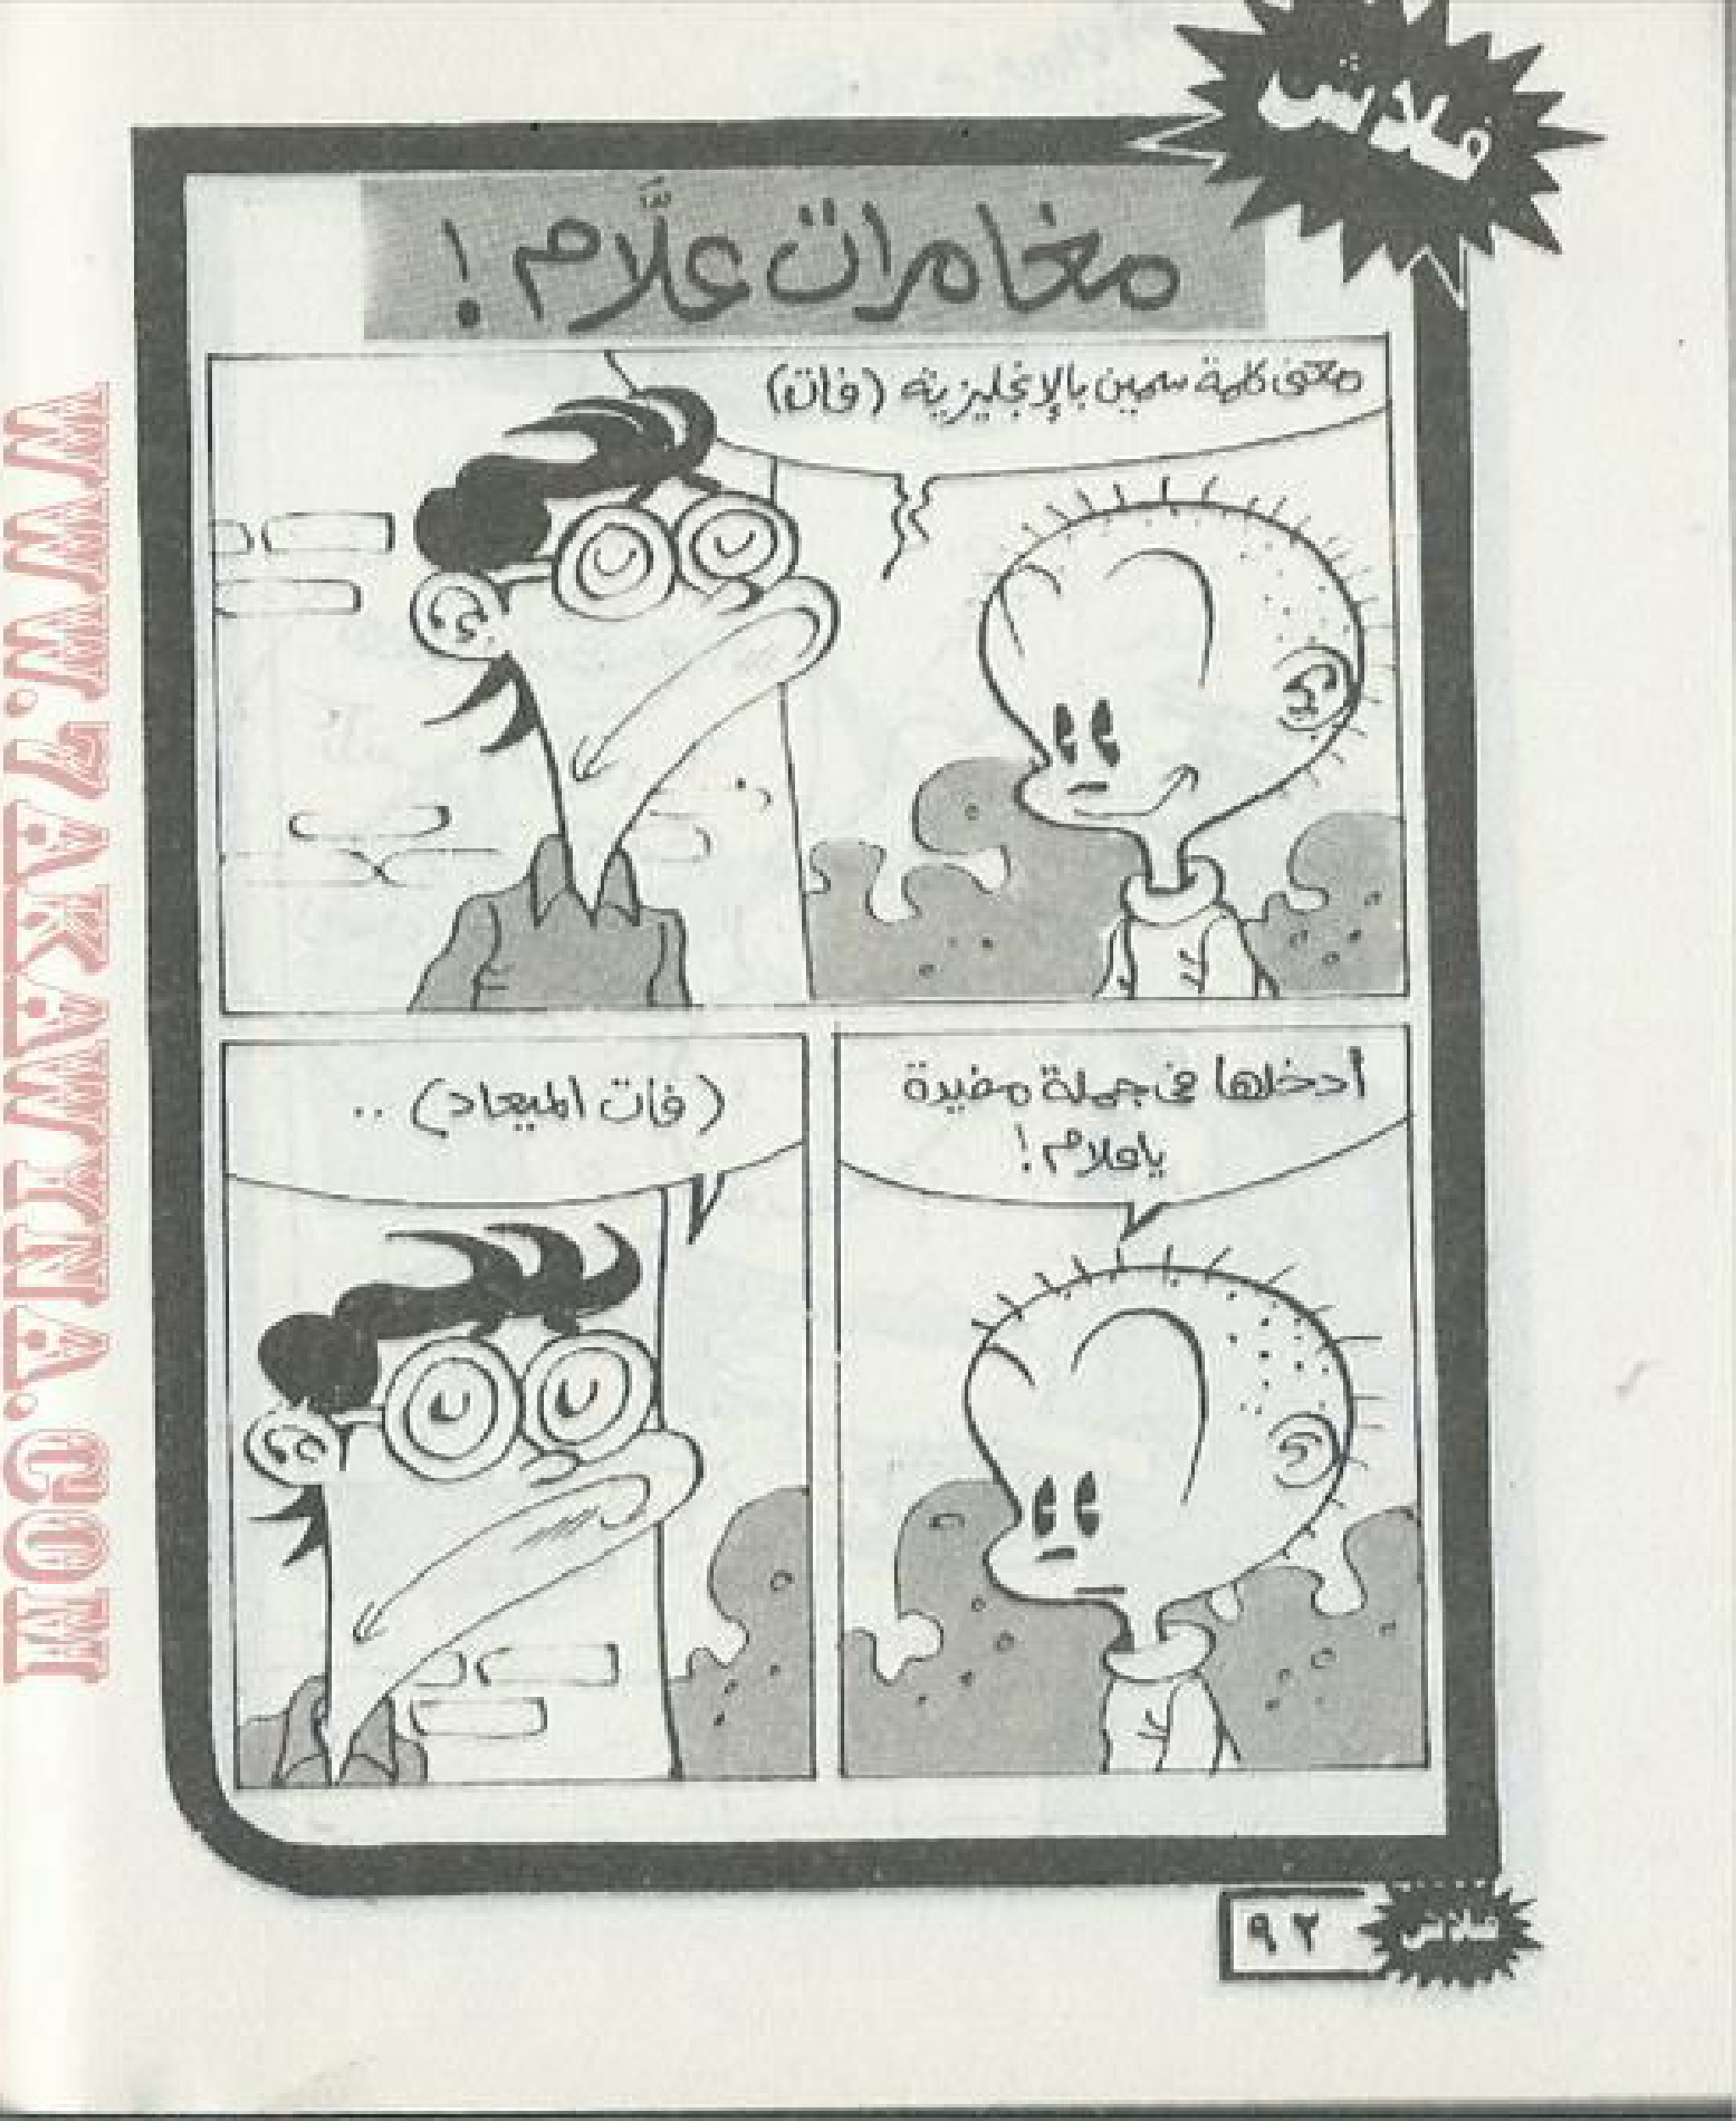 فلاش
مغامرات علَّام !
معنى كلمة سمين بالإنجليزية (فات)
أدخلها فى جملة مفيدة
ياعلام !
(فات الميعاد) ..
٩٢
فلاش
WWW.7AKAWTNA.COM